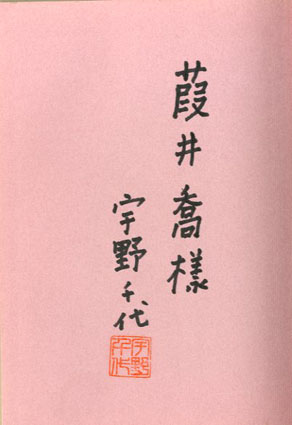 葭井喬様
宇野千代
宇野千代